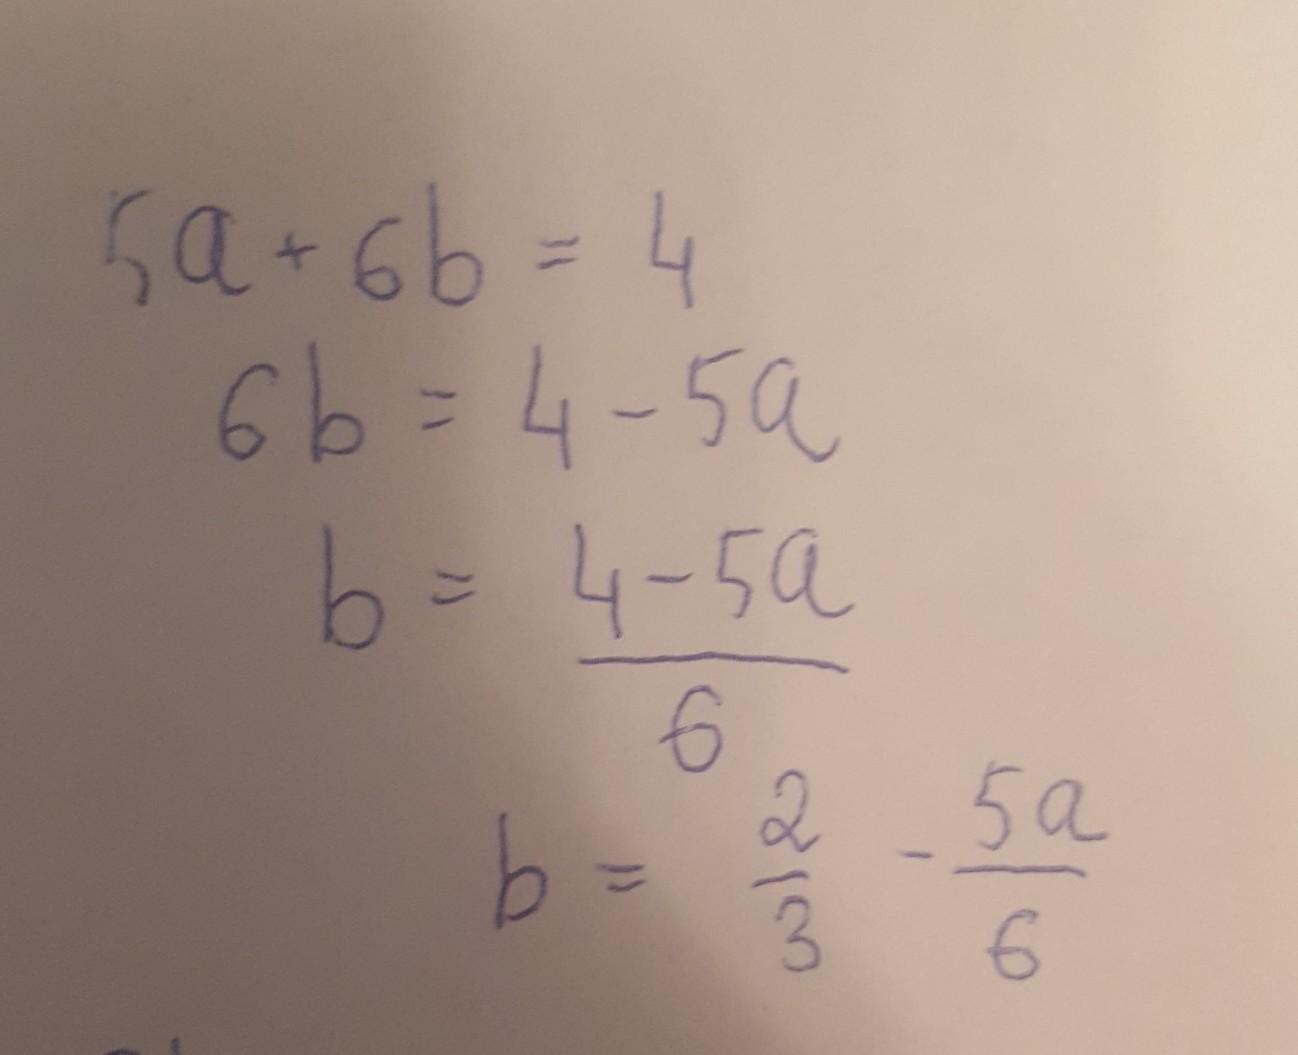 5a + 6b = 4
6b = 4 - 5a
b = (4 - 5a)/6
b = 2/3 - 5a/6